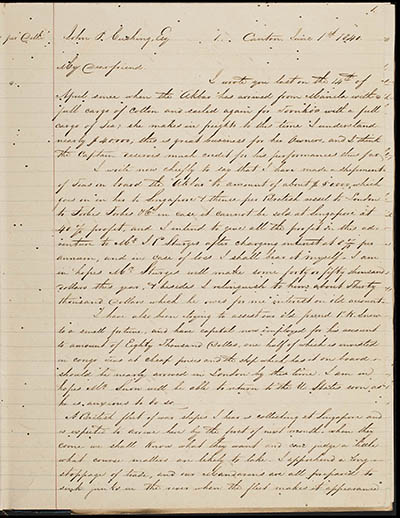 1
per Delhi John P. Cushing, Esq 1. Canton June 1st 1840
My Dear friend
I wrote you last on the 14th of
April since when the Akbar has arrived from Manila with a
full cargo of Cotton and sailed again for with a full
cargo of Tea; she makes in freights to this time I understand
nearly $40000, this is great business for her Owners, and I think
the Captain deserves much credit for his performances thus far.
I write now chiefly to say that I have made a shipment
of Teas on board the Akbar to amount of about $ which
goes on in her to Singapore & thence per British vessel to London
to Forbes Forbes & Co in case it cannot be sold at Singapore at
40 % profit, and I intend to give all the profit in this ad-
venture to Mr. J P Sturgis after charging interest at 6 % per
annum, and in case of loss I shall bear it myself. I am
in hopes Mr Sturgis will make some forty or fifty thousand
dollars this year, & besides I relinquish to him about Thirty
thousand dollars which he owes for me interest on old account.
I have also been trying to assist our old friend P. W. Snow
to a small fortune, and have capital now employed for his account
to amount of Eighty Thousand Dollars, one half of which is invested
in congo teas at cheap prices and the ship which has it on board
should be nearly arrived in London by this time. I am in
hopes Mr. Snow will be able to return to the U States soon as
he is anxious to do so.
A British fleet of war ships I hear is collecting at Singapore and
is expected to arrive here by the first of next month when they
come we shall know what they want and can judge a little
what course matters are likely to take. I apprehend a long
stoppage of trade, and our mandareens are all prepared to
sink junks in the river when the fleet makes it appearance